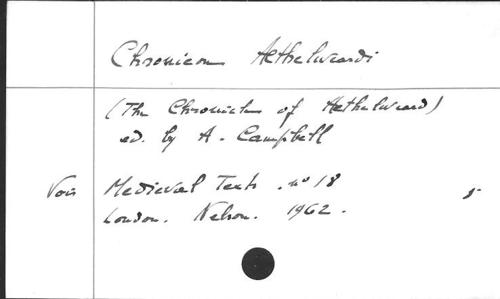 Chronicon Aethelweardi
(The Chronicle of Aethelweard)
ed. by A. Campbell
Voir Medieval Texts. n° 18
London. Nelson. 1962.